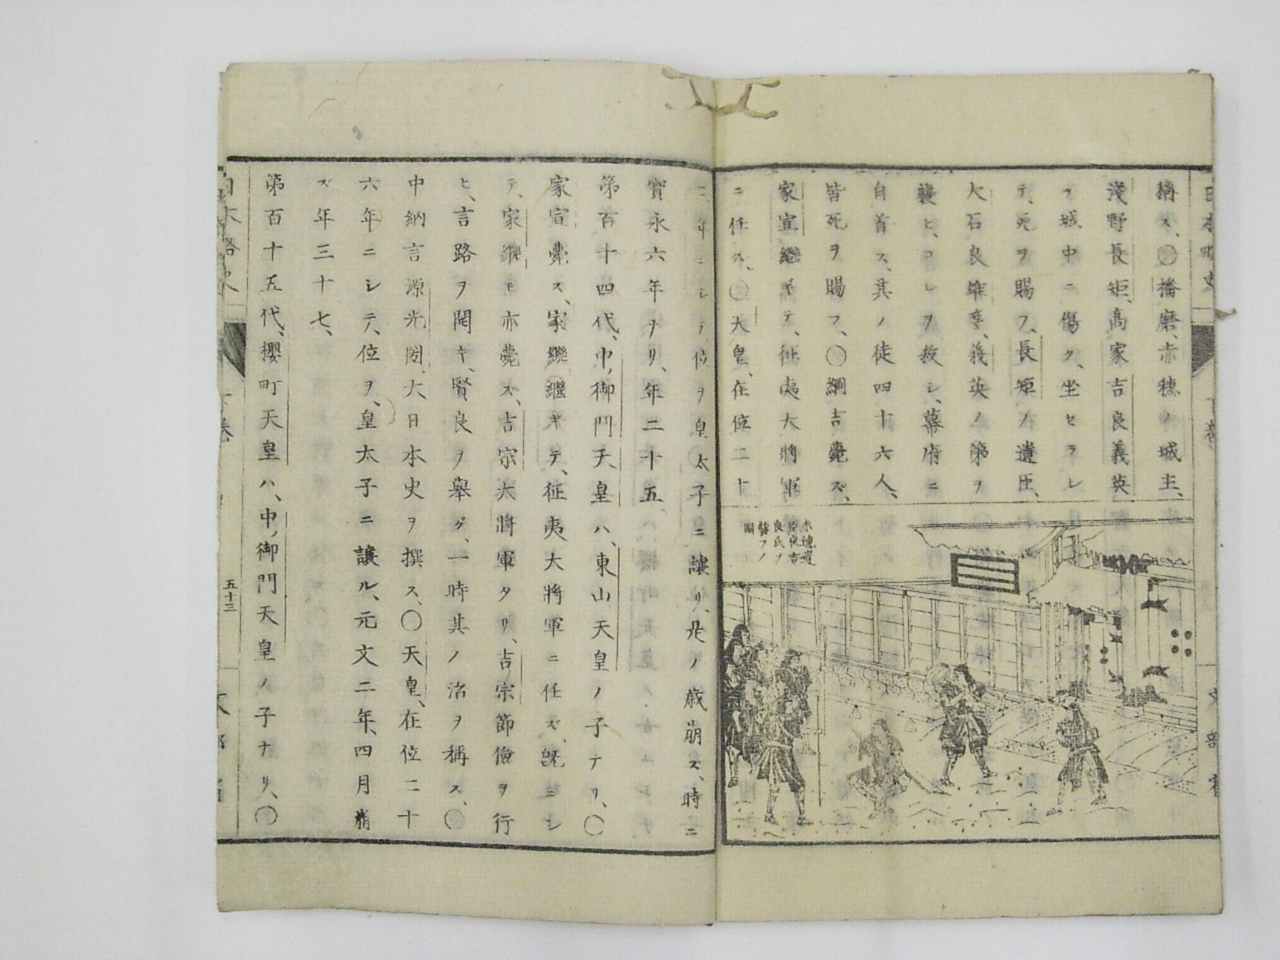 搆ス、〇播磨、赤穂ノ城主、
淺野長矩、髙家吉良義英
ヲ城中ニ傷ク、坐セラレ
テ、死ヲ賜フ、長矩ノ遺臣、
大石良雄等、義英ノ第ヲ
襲ヒ、コレヲ殺シ、幕府ニ
自首ス、其ノ徒四十六人、
皆死ヲ賜フ、〇綱吉薨ズ、
家宣繼ギテ、征夷大將軍
ニ任ス、〇天皇、在位二十
赤穂遺
臣東吉
良氏ヲ
襲フノ
圖
二年ニシテ、位ヲ皇太子ニ讓リ、是ノ歳崩ス、時ニ
寳永六年ヲリ、年三十五、
第百十四代、中ノ御門天皇ハ、東山天皇ノ子ナリ、〇
家宣薨ス、家繼繼ギテ、征夷大將軍ニ任ズ、既ニシ
テ、家繼モ亦薨ズ、吉宗大將軍タリ、吉宗節儉ヲ行
ヒ、言路ヲ開キ、賢良ヲ舉グ、一時其ノ治ヲ稱ス、〇
中納言源光圀、大日本史ヲ撰ス、〇天皇、在位二十
六年ニシテ、位ヲ、皇太子ニ讓ル、元文二年、四月崩
ズ年三十七、
第百十五代、櫻町天皇ハ、中ノ御門天皇ノ子ナリ、〇
五十三